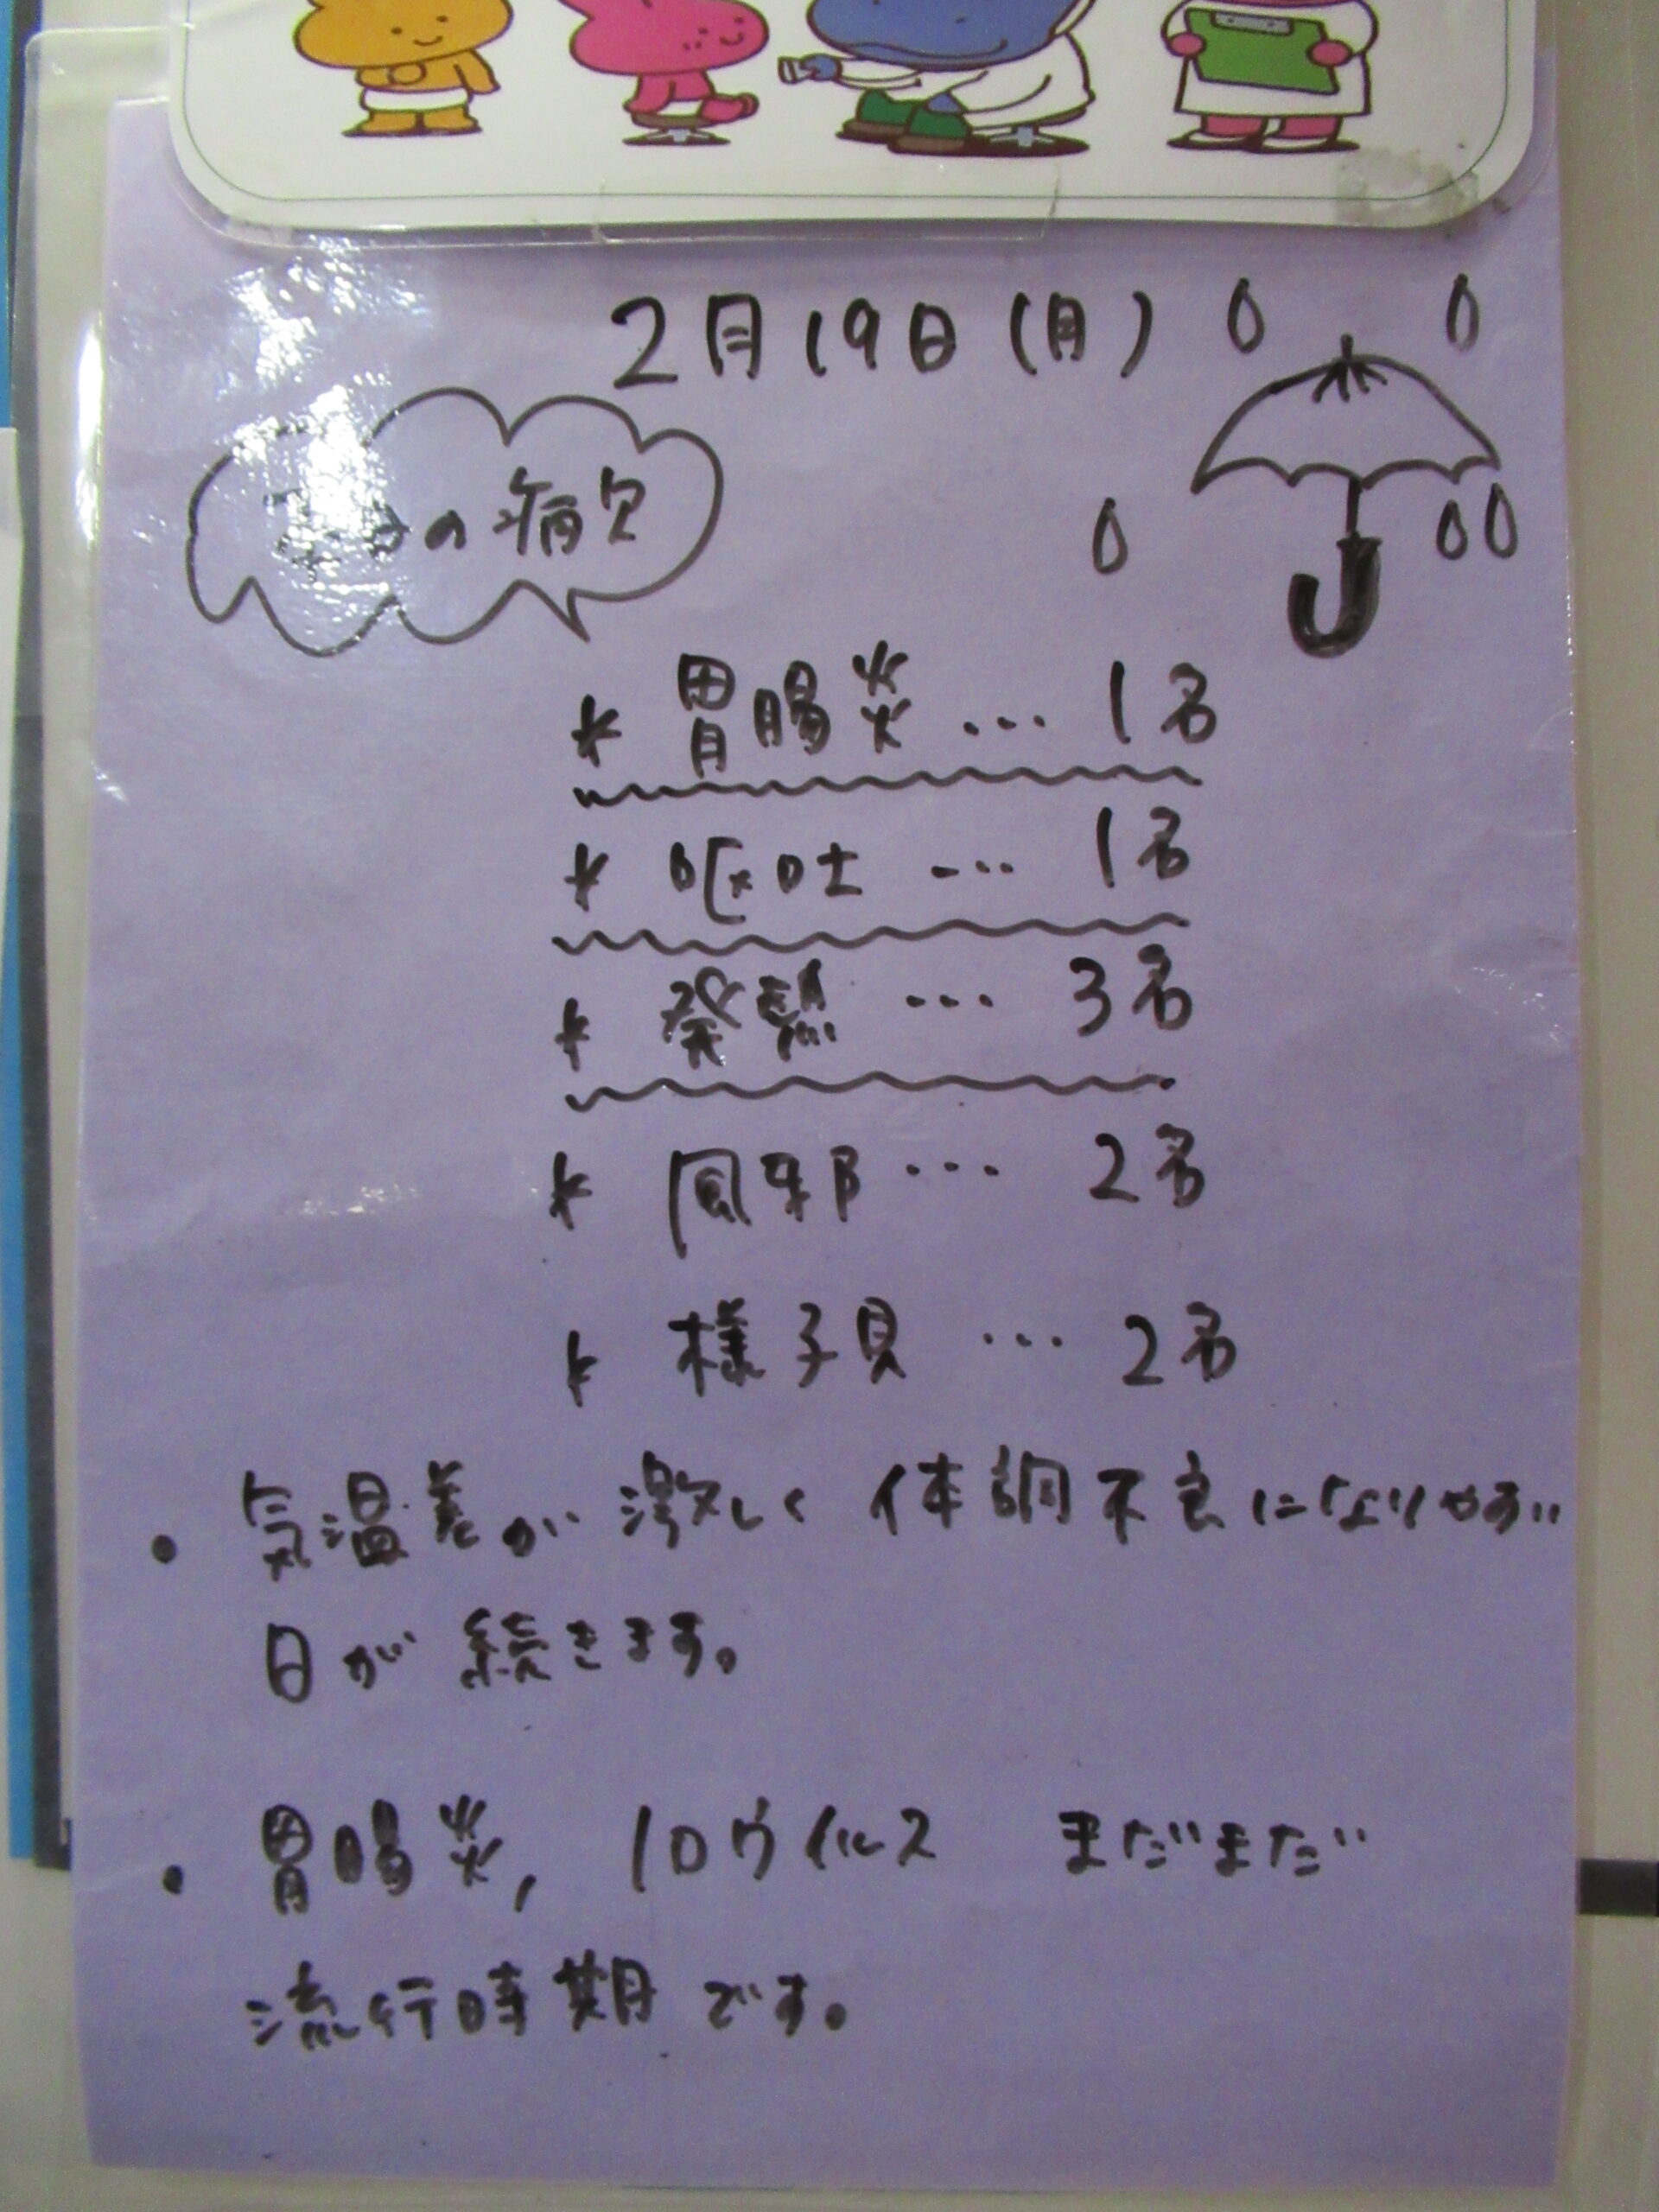 2月19日(月)
の病欠
* 胃腸炎 … 1名
* 嘔吐 … 1名
* 発熱 … 3名
* 風邪 … 2名
* 様子見 … 2名
・ 気温差が激しく体調不良になりやすい
日が続きます。
・ 胃腸炎, ノロウイルス まだまだ
流行時期です。